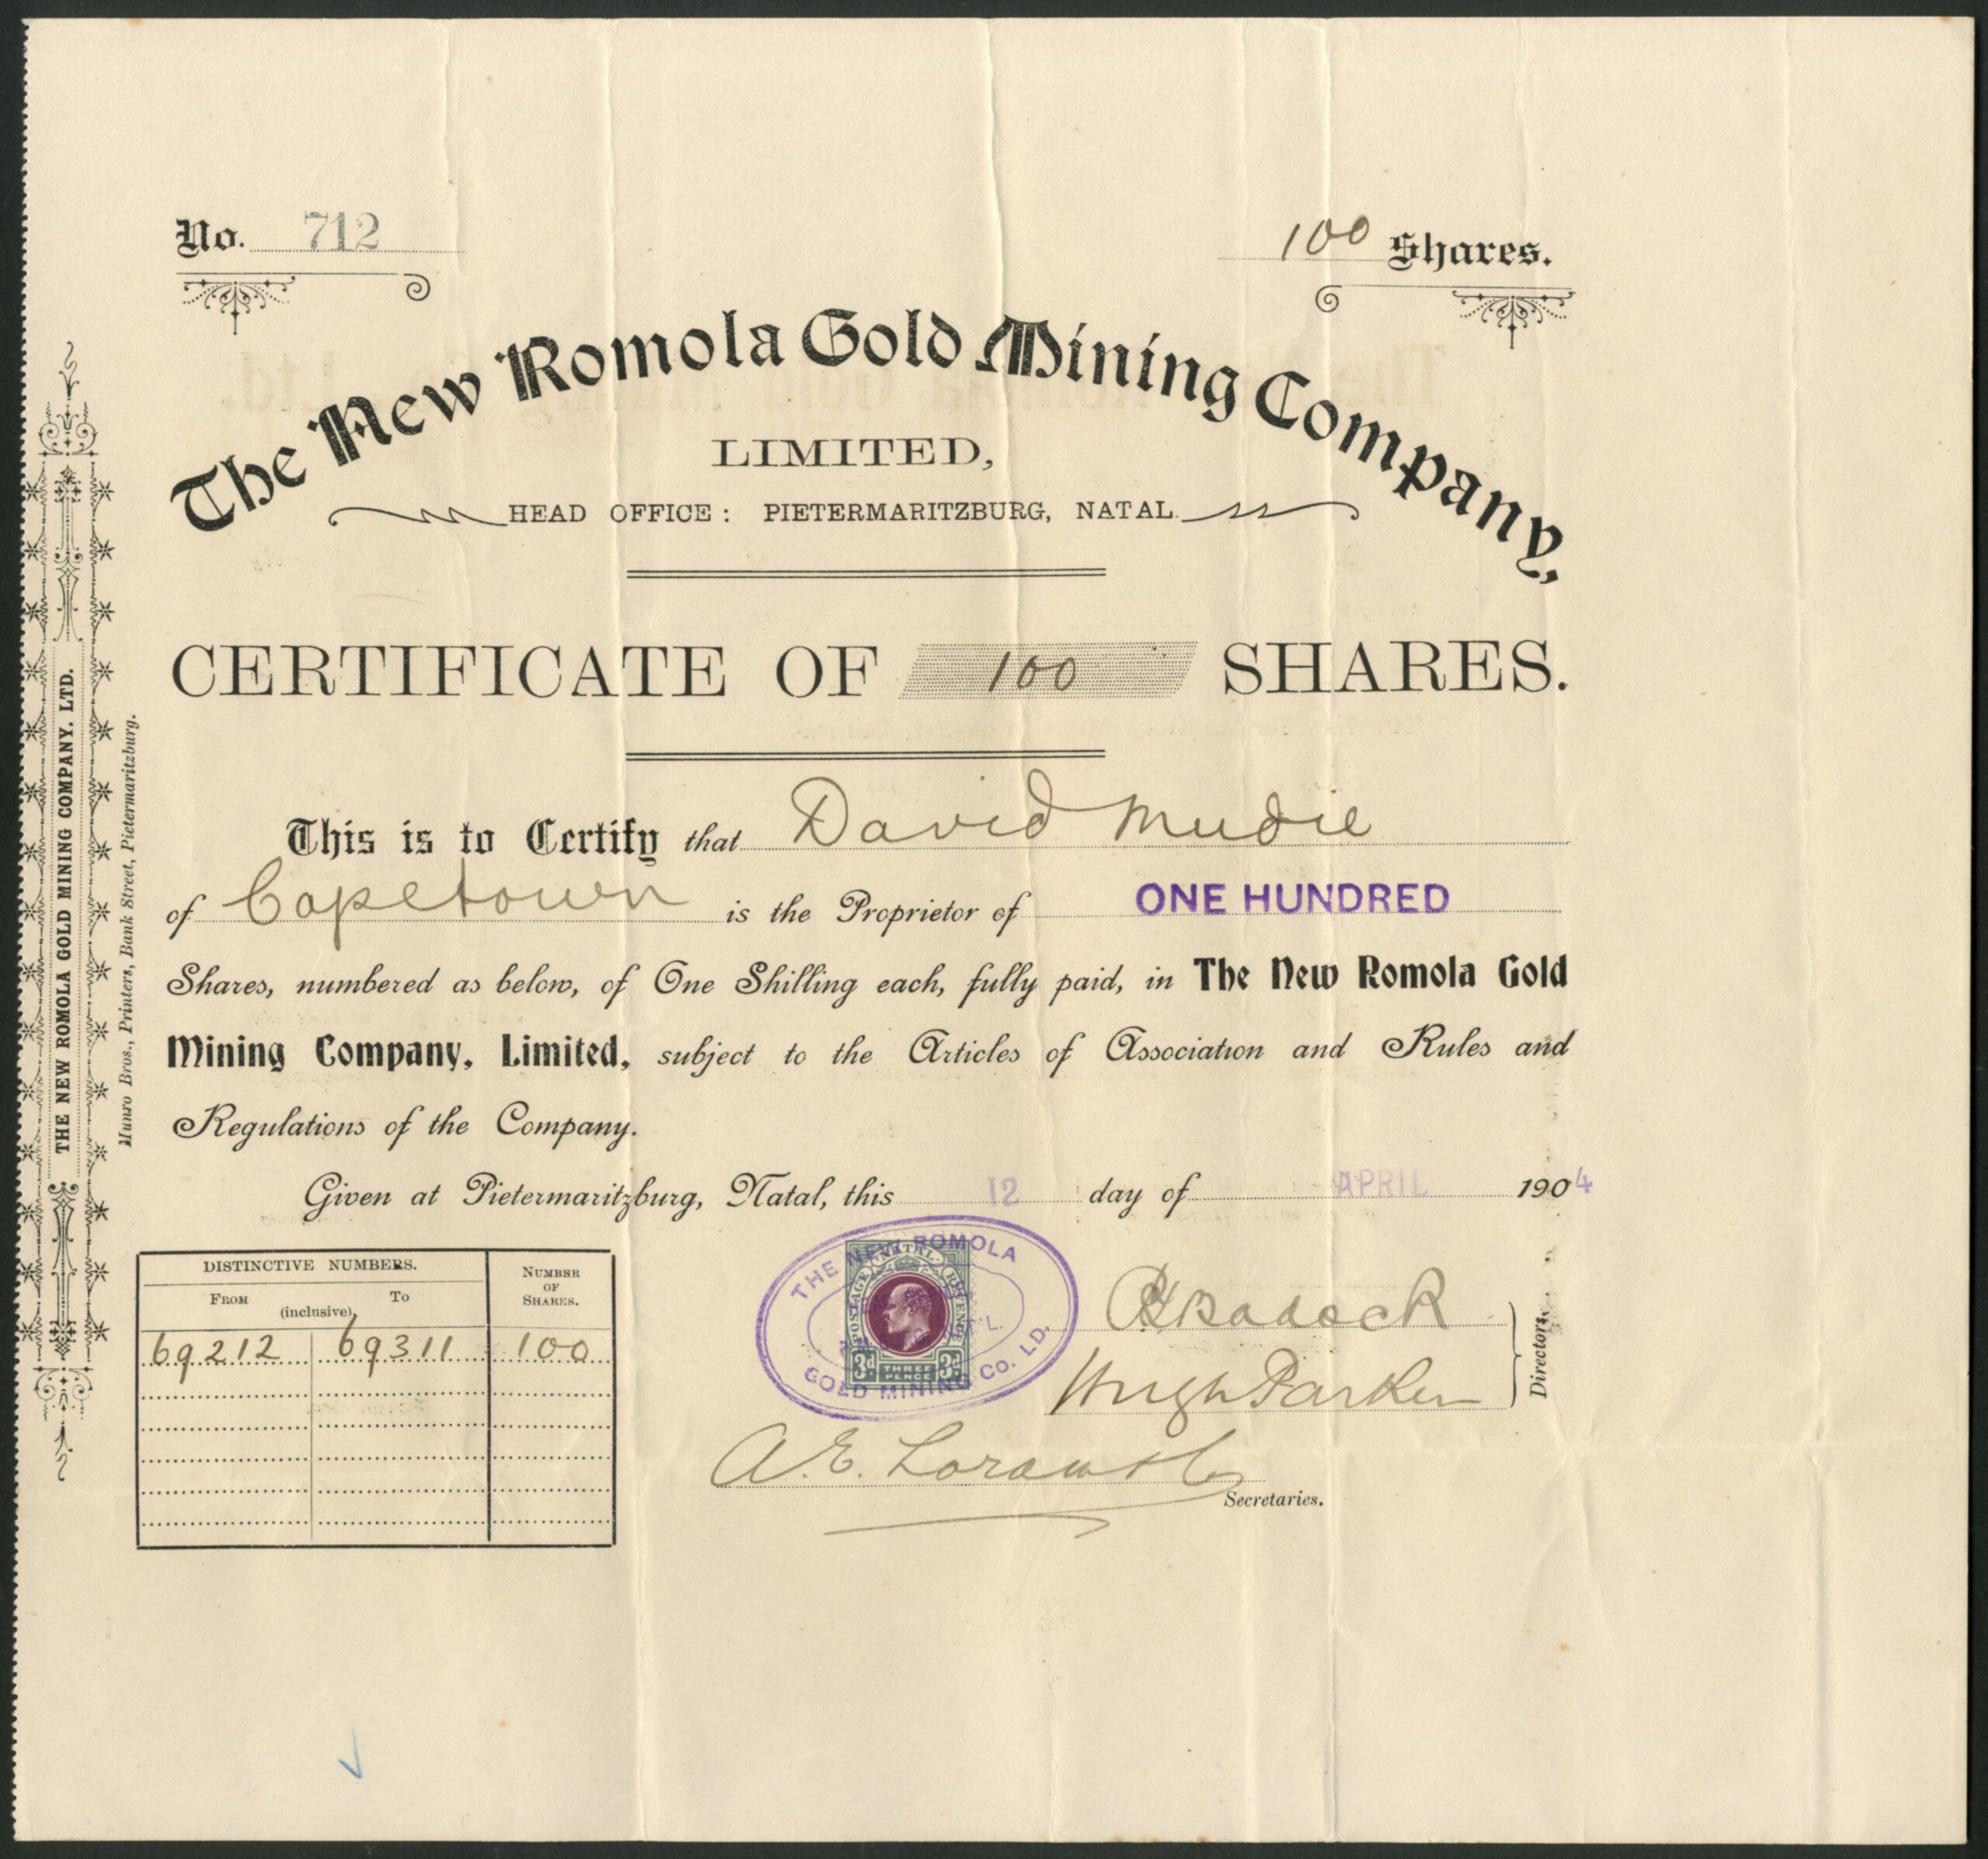 No. 712
100 Shares.
The New Romola Gold Mining Company,
LIMITED,
HEAD OFFICE: PIETERMARITZBURG, NATAL.
CERTIFICATE OF 100 SHARES.
This is to Certify that David Mudie
of Capetown is the Proprietor of ONE HUNDRED
Shares, numbered as below, of One Shilling each, fully paid, in The New Romola Gold
Mining Company, Limited, subject to the Articles of Association and Rules and
Regulations of the Company.
Given at Pietermaritzburg, Natal, this 12 day of APRIL 1904
DISTINCTIVE NUMBERS.
NUMBER OF SHARES.
FROM To
(inclusive)
69212 69311 100
THE NEW ROMOLA
GOLD MINING CO. LD.
NATAL
POSTAGE REVENUE
3d THREE PENCE 3d
Hugh Parker
Directors.
A.E.
Secretaries.
THE NEW ROMOLA GOLD MINING COMPANY, LTD.
Munro Bros., Printers, Bank Street, Pietermaritzburg.